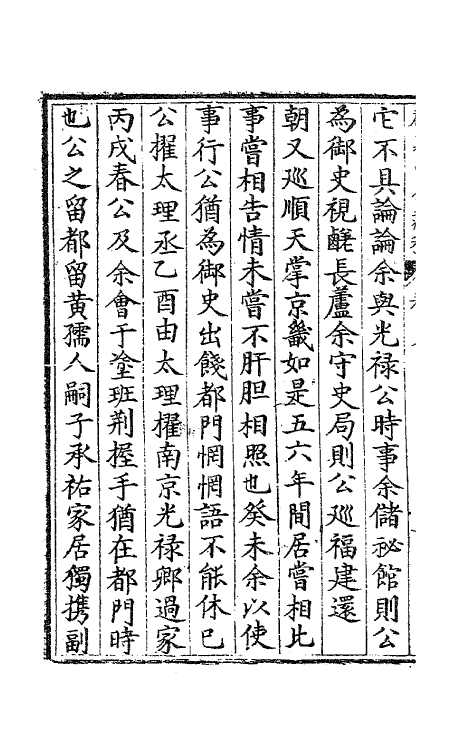 它不具論論余與光祿公時事余儲祕館則公
為御史視鹺長蘆余守史局則公巡福建還
朝又巡順天掌京畿如是五六年間居嘗相比
事嘗相告情未嘗不肝胆相照也癸未余以使
事行公猶為御史出餞都門惘惘語不能休已
公擢太理丞乙酉由太理擢南京光祿卿過家
丙戌春公及余會于塗班荆握手猶在都門時
也公之留都留黄孺人嗣子承祐家居獨携副